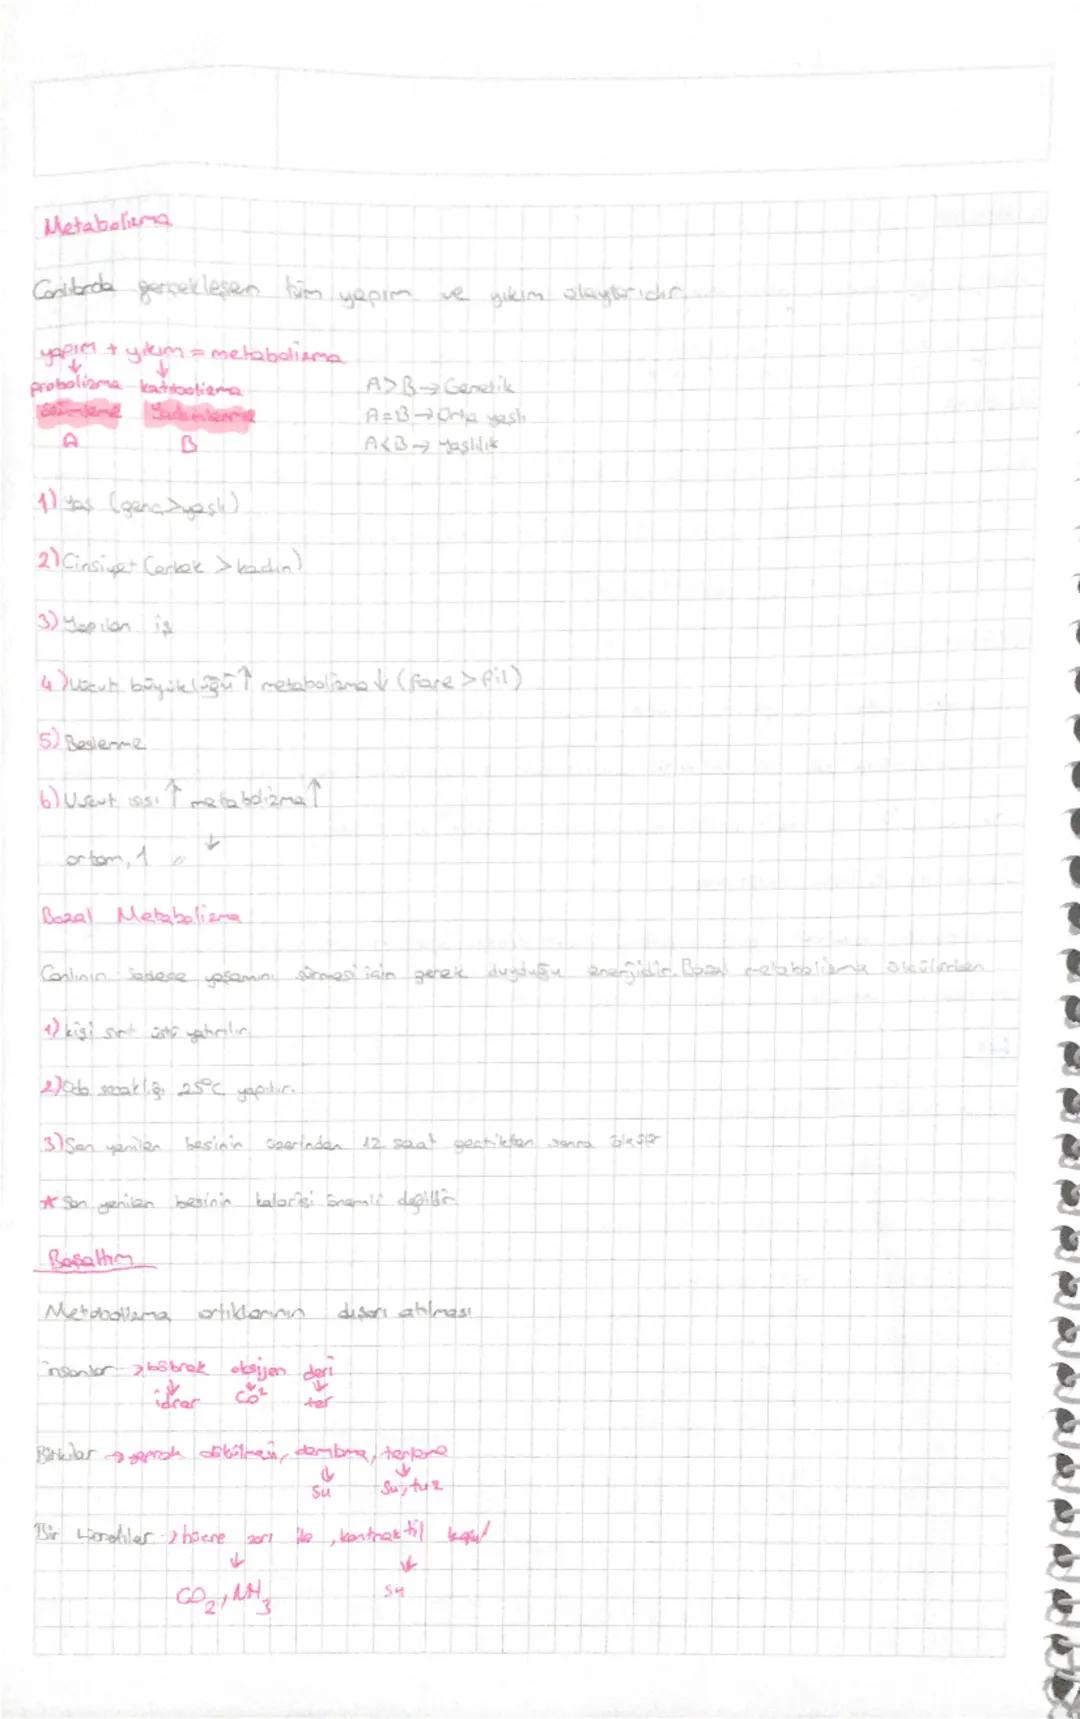 Metabolizma
Canlılarda gerçekleşen tüm yapım ve yıkım olaylarıdır.
yapım + yıkım = metabolizma
probolizma katabolizma
özümleme Yadımlama
A B
A>B → Genetik
A=B → Orta yaşlı
A<B → yaşlılık
1) Yaş (genç>yaşlı)
2) Cinsiyet (erkek > kadın)
3) Yapılan iş
4) Vücut büyüklüğü ↑ metabolizma ↓ (fare > fil)
5) Beslenme
6) Vücut ısısı ↑ metabolizma ↑
ortam, 1 " ↓
Bazal Metabolizma
Canlının sadece yaşamını sürmesi için gerek duyduğu enerjidir. Bazal metabolizma ölçülürken
1) kişi sırt üstü yatırılır.
2) Oda sıcaklığı 25°C yapılır.
3) Son yenilen besinin üzerinden 12 saat geçtikten sonra ölçülür
* Son yenilen besinin kalorisi önemli değildir.
Boşaltım
Metabolizma artıklarının dışarı atılması
insanlar → böbrek oksijen deri
idrar CO² ter
Bitkiler → yaprak dökülmesi, damlama, terleme
Su Su, tuz
Bir hücreliler → hücre zarı ile, kontraktil koful
CO₂, NH₃ Su